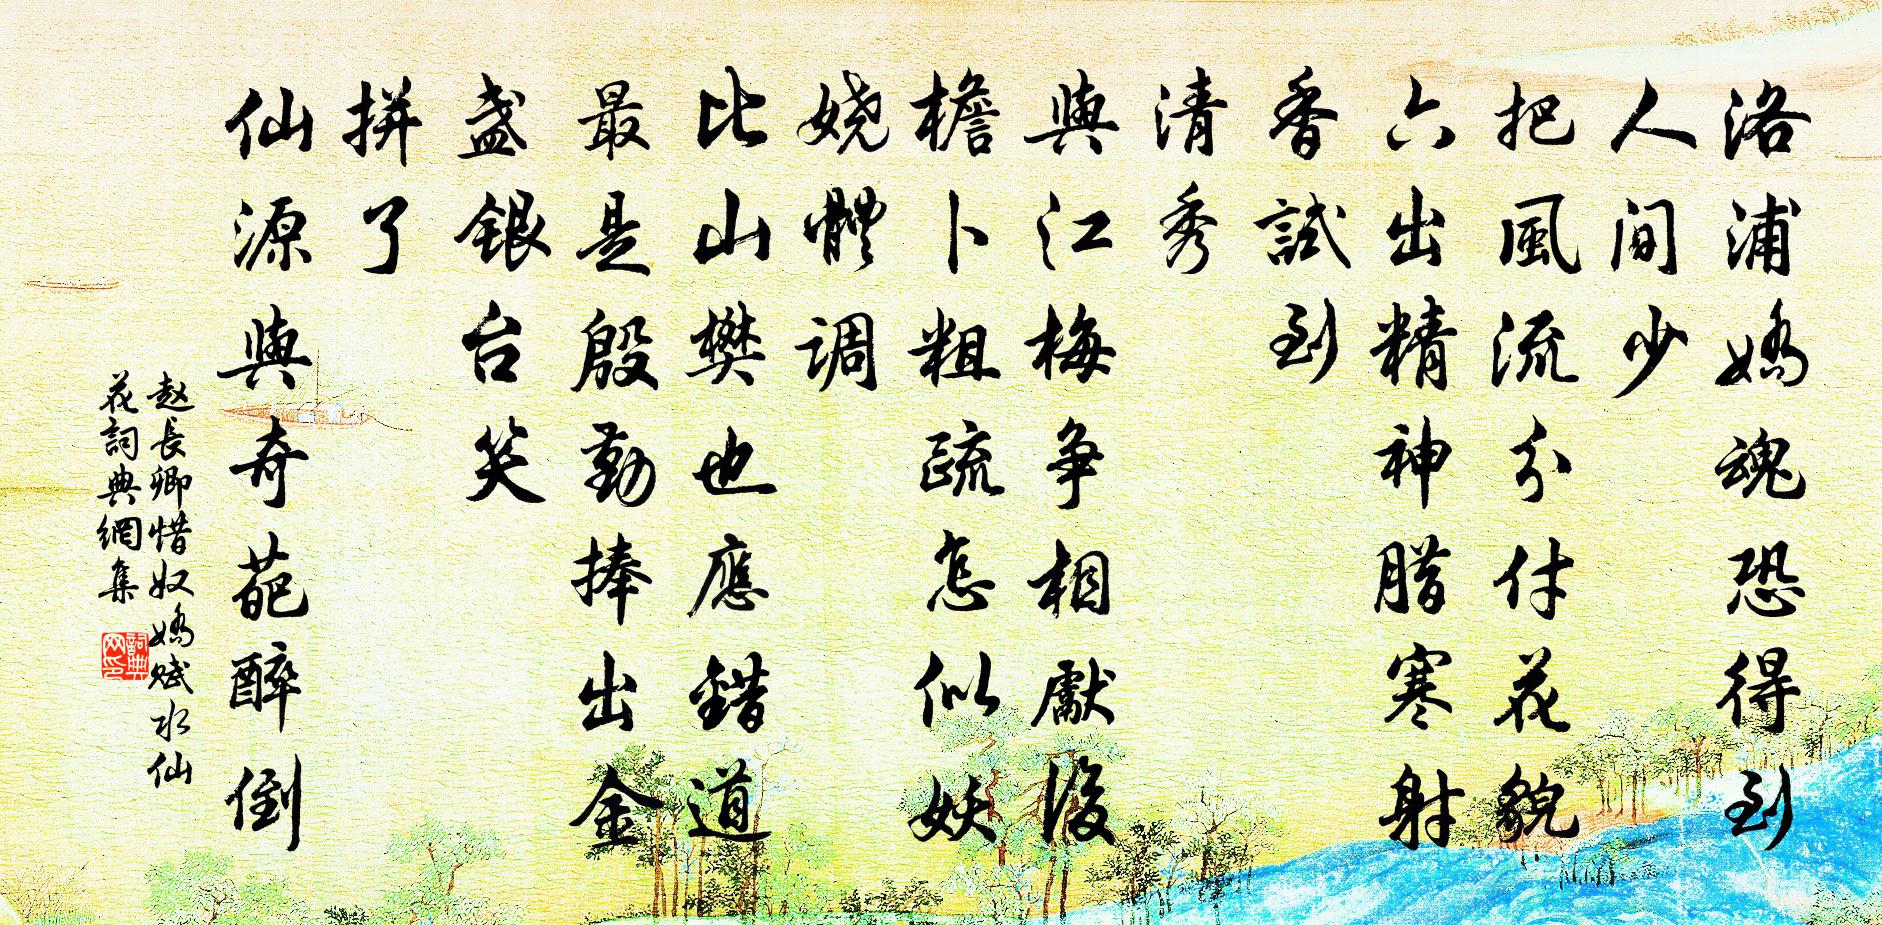 洛浦嬌魂恐得到
人间少
把風流分付花貌
六出精神腊寒射
香試到
清秀
與江梅争相獻後
檐卜粗疏怎似妖
娆體调
比山樊也應錯道
最是殷勤捧出金
盏銀台笑
拼了
仙源與奇葩醉倒
赵長卿惜奴嬌赋水仙
花詞典網集
詞典网印